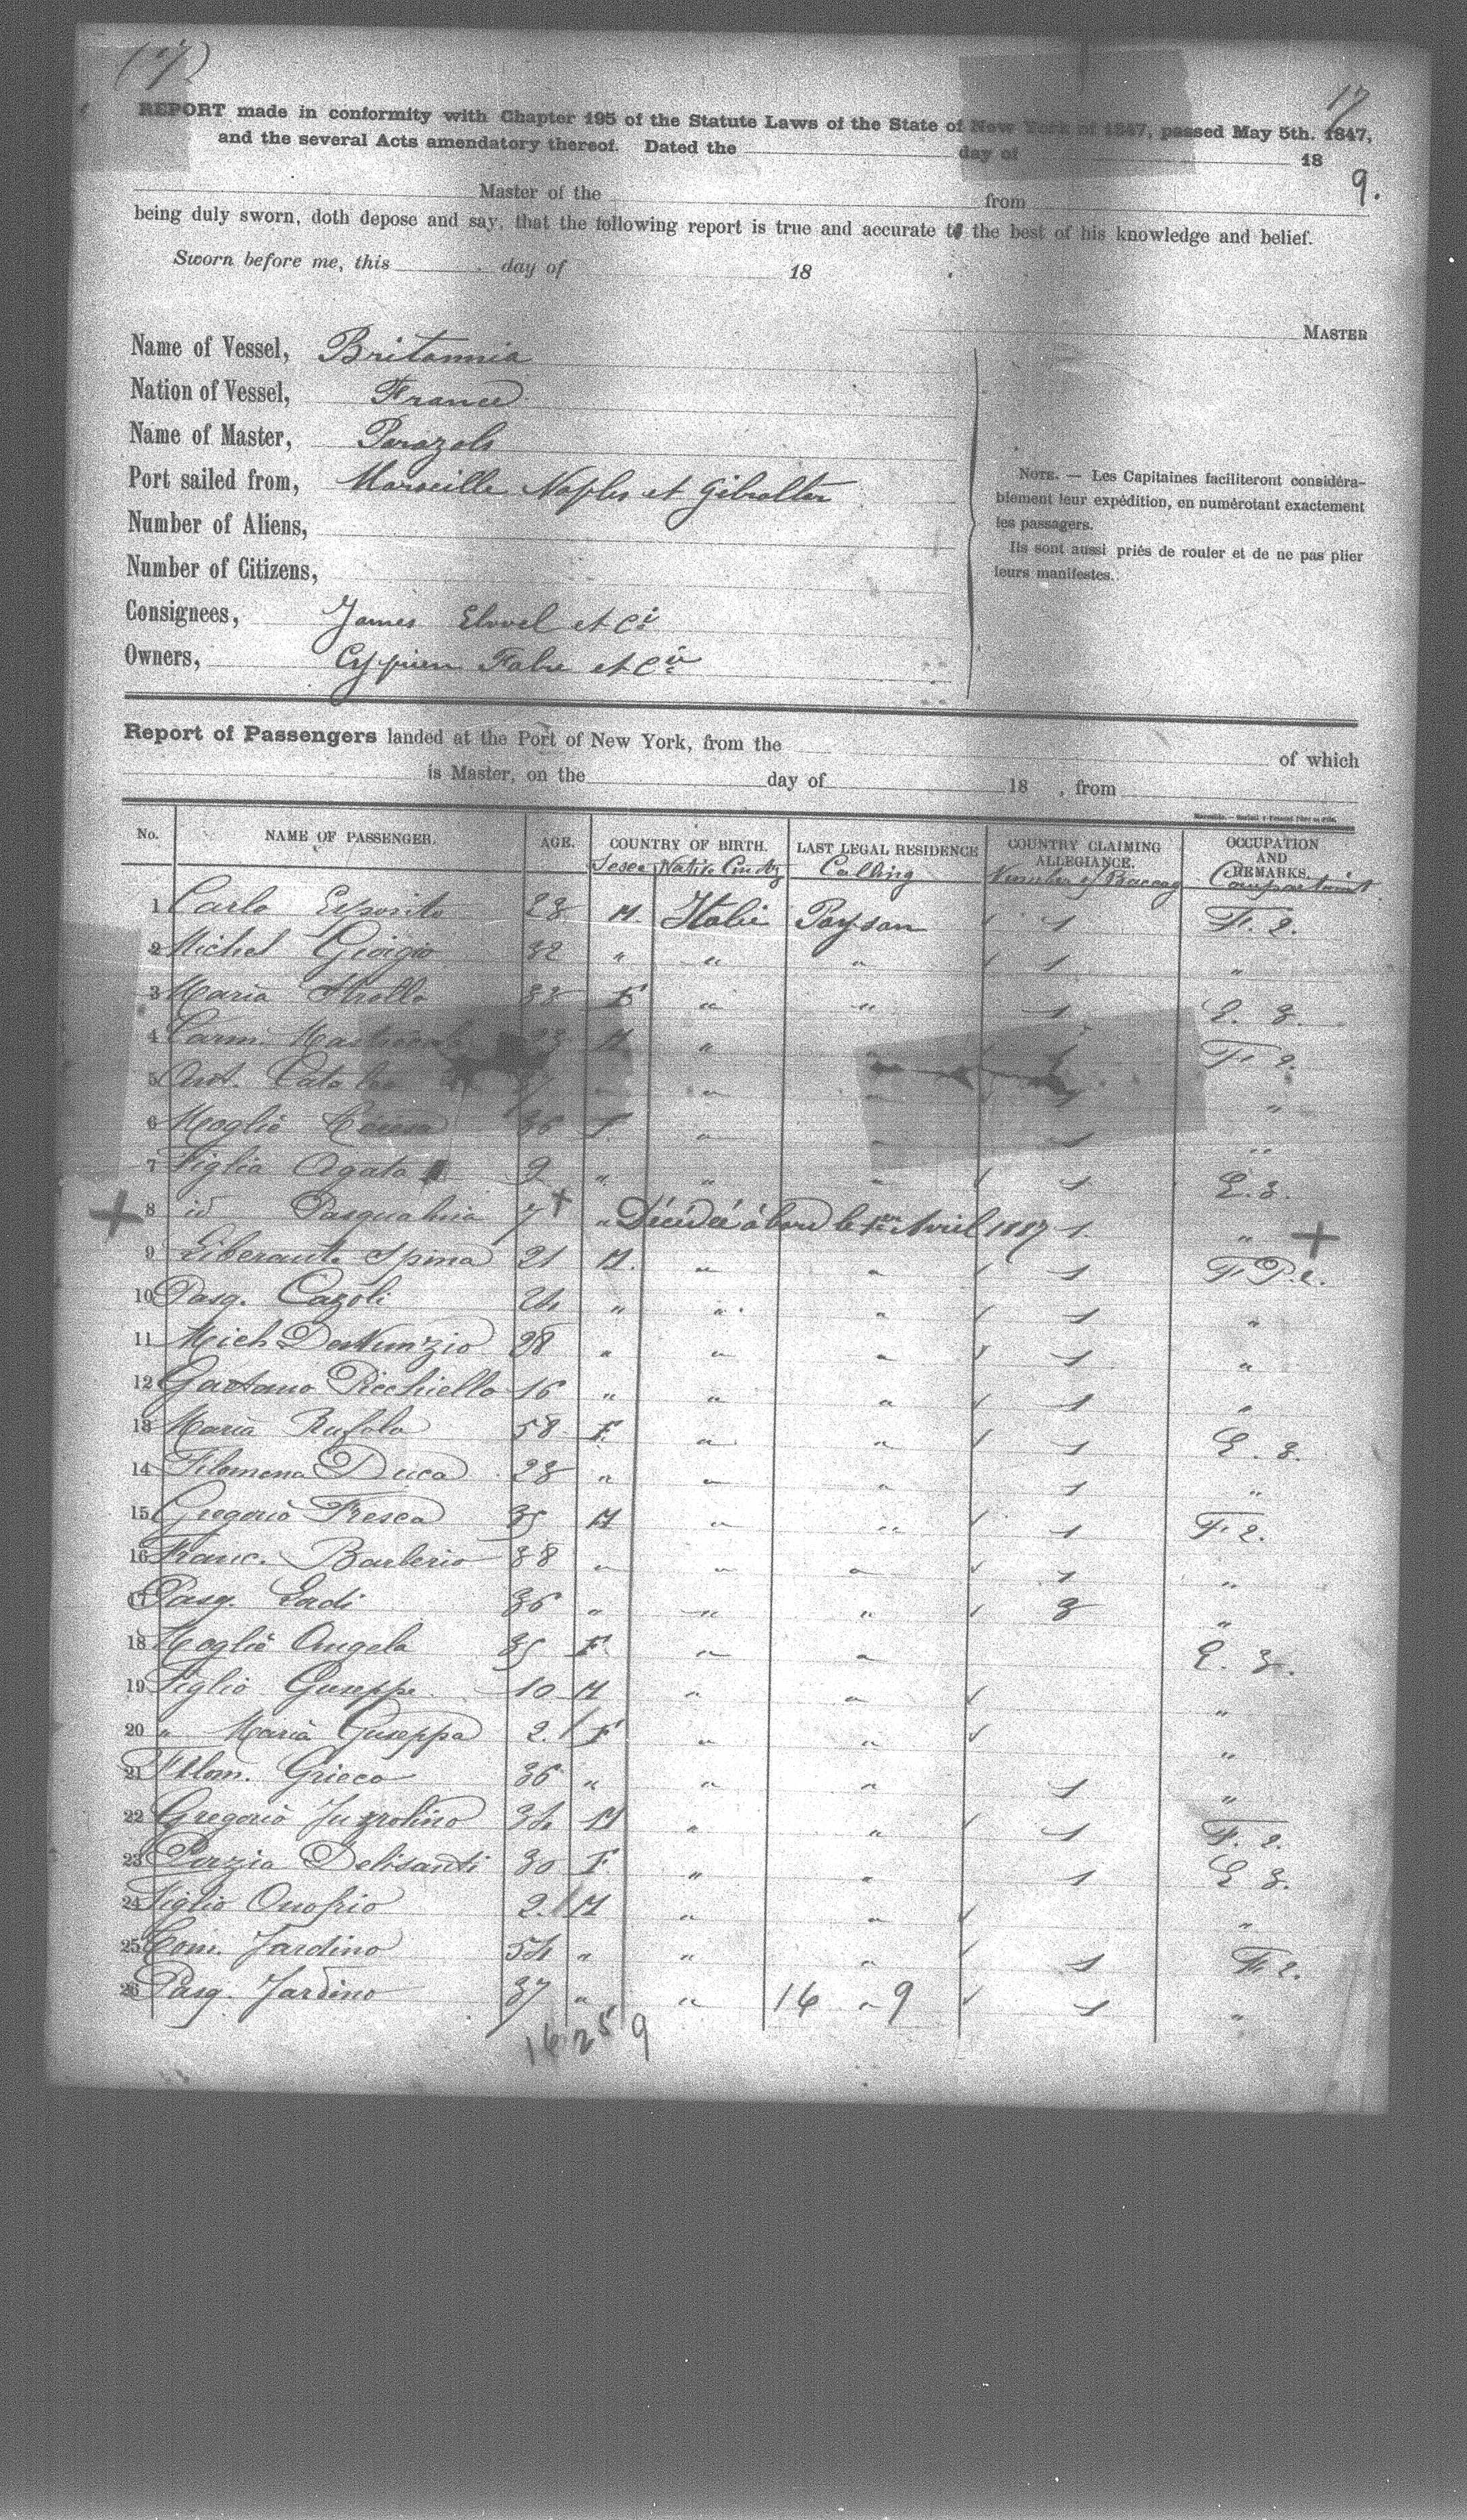 (17)
17
REPORT made in conformity with Chapter 195 of the Statute Laws of the State of New York of 1847, passed May 5th. 1847,
and the several Acts amendatory thereof. Dated the day of 18
9.
Master of the from
being duly sworn, doth depose and say, that the following report is true and accurate to the best of his knowledge and belief.
Sworn before me, this day of 18
MASTER
Name of Vessel, Britannia
Nation of Vessel, France
Name of Master, Parazols
Port sailed from, Marseille Naples et Gibraltar
Number of Aliens,
Number of Citizens,
Consignees, James Elwel et Cie
Owners, Cyprien Fabre et Cie
NOTE. — Les Capitaines faciliteront considéra-
blement leur expédition, en numérotant exactement
les passagers.
Ils sont aussi priés de rouler et de ne pas plier
leurs manifestes.
Report of Passengers landed at the Port of New York, from the of which
is Master, on the day of 18 , from
No. NAME OF PASSENGER. AGE. COUNTRY OF BIRTH. LAST LEGAL RESIDENCE COUNTRY CLAIMING ALLEGIANCE. OCCUPATION AND REMARKS.
Native Calling Number of
1 Carlo Esposito 28 M. Italie Paysan 1 F. 2.
2 Michel Giorgio 32 " " " 1 "
3 Maria 33 F " " 1 E. 3.
4 Carm. 23 M " F. 2.
5 Ant. " "
6 Moglie Teresa 36 F. " " 1 "
7 Figlia Agata 9 " " " 1 E. 3.
8 id Pasqualina 7 + " Décédée à bord le 1er Avril 1887 1. " +
9 Liberante Spina 21 M. " " 1 F. 2.
10 Pasq. Cazoli 24 " " " 1 "
11 Mich DeNunzio 28 " " " 1 "
12 Gaetano Picchiello 16 " " " 1 "
13 Maria Rufolo 58 F. " " 1 E. 3.
14 Filomena Duca 28 " " " 1 "
15 Gregorio Fresca 35 M " " 1 F. 2.
16 Franc. Barberio 38 " " " 1 "
17 Pasq. Ladi 36 " " " 3 "
18 Moglie Angela 35 F " " E. 3.
19 Figlio Guseppe 10 M " " "
20 " Maria Guseppa 2. F " " "
21 Filom. Grieco 36 " " " 1 "
22 Gregorio 34 M " " 1 F. 2.
23 Porzia Delisanti 30 F. " " 1 E 3.
24 Figlio Onofrio 2. M " " "
25 Dom. Jardino 54 " " " 1 F. 2.
26 Pasq. Jardino 37 " " 16 " 9 1 "
16 25 9